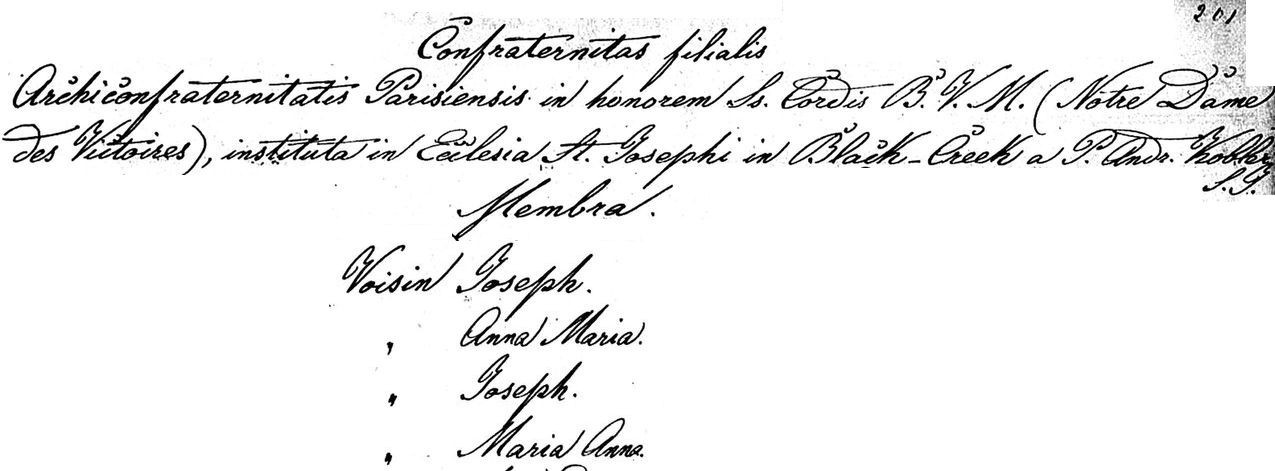 201
Confraternitas filialis
Archiconfraternitatis Parisiensis in honorem Ss. Cordis B. V. M. (Notre Dame
des Victoires), instituta in Ecclesia St. Josephi in Black-Creek a P. Andr. Kohler
S. J.
Membra.
Voisin Joseph.
" Anna Maria.
" Joseph.
" Maria Anna.